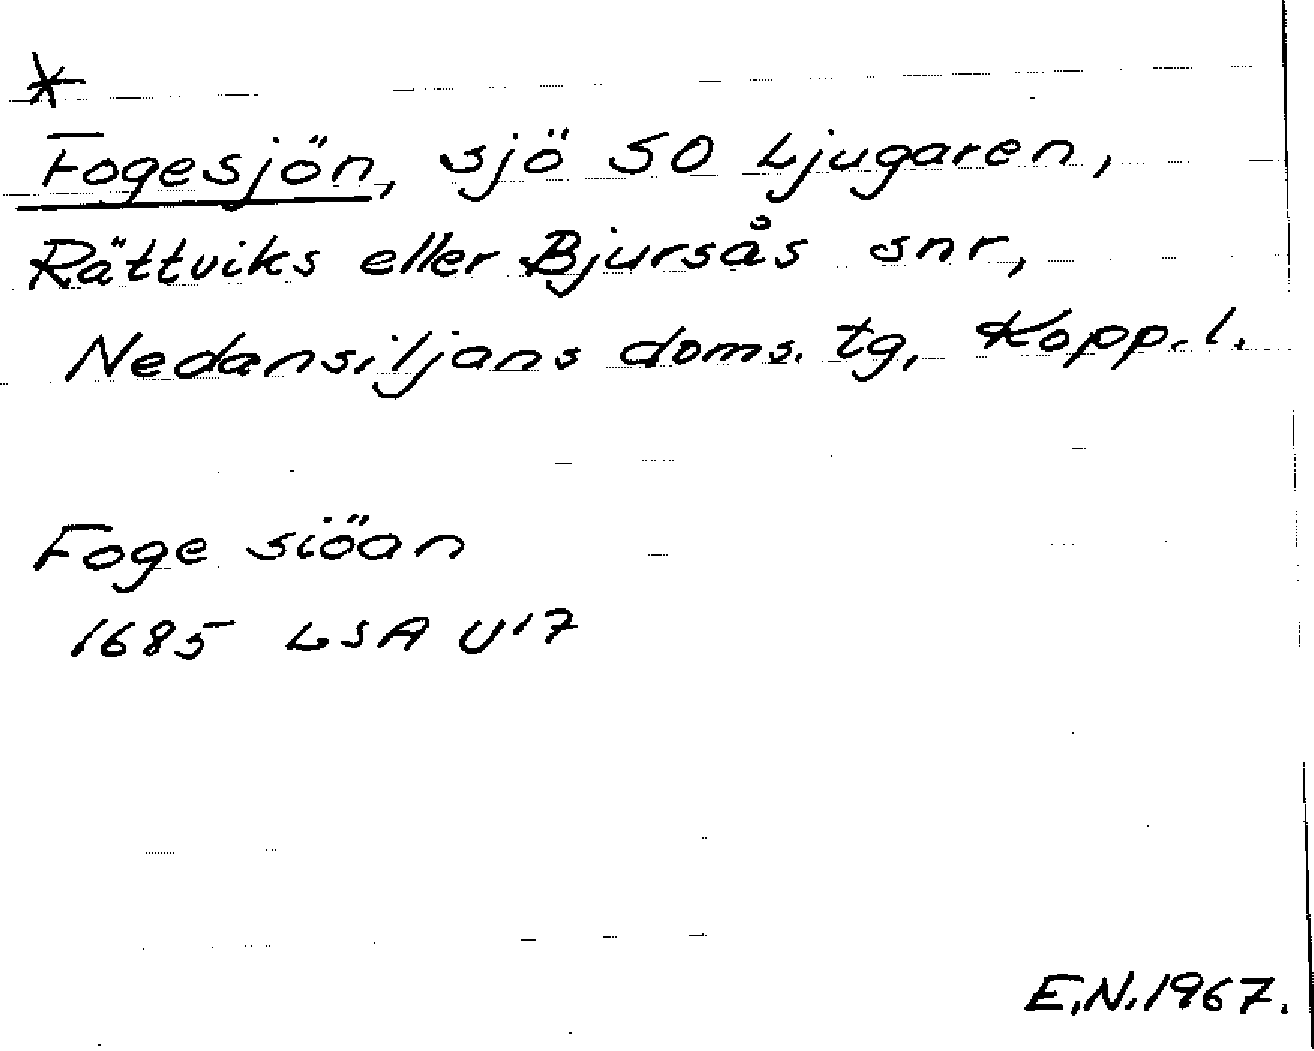 *
Fogesjön, sjö SO Ljugaren,
Rättviks eller Bjursås snr,
Nedansiljans doms. tg, Kopp. l.
Foge siöan
1685 LSA U17
E.N. 1967.